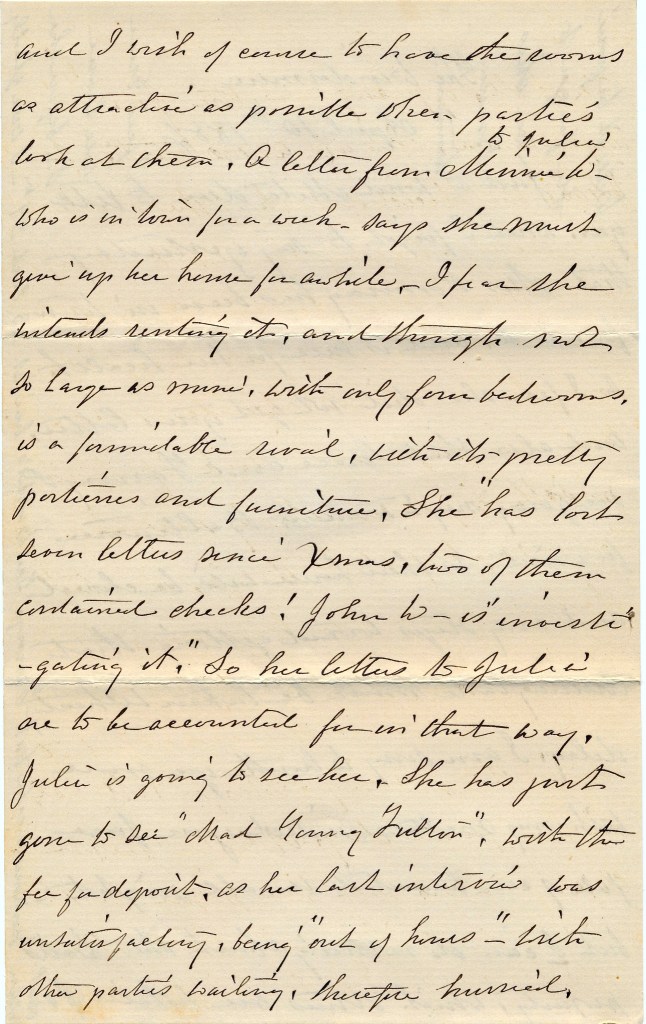 and I wish of course to have the rooms
as attractive as possible when parties
look at them. A letter from Minnie W—
to Julie
who is in town for a week— says she must
give up her home for awhile,— I fear she
intends renting it, and though not
so large as mine, with only four bedrooms,
is a formidable rival, with its pretty
portiérres and furniture. She "has lost
seven letters since Xmas, two of them
contained checks! John W— is investi
-gating it." So her letters to Julie
are to be accounted for in that way.
Julie is going to see her. She has just
gone to see "Mad Young Fulton", with the
fee for deposit, as her last interview was
unsatisfactory, being "out of hours"— with
other parties waiting, therefore hurried.